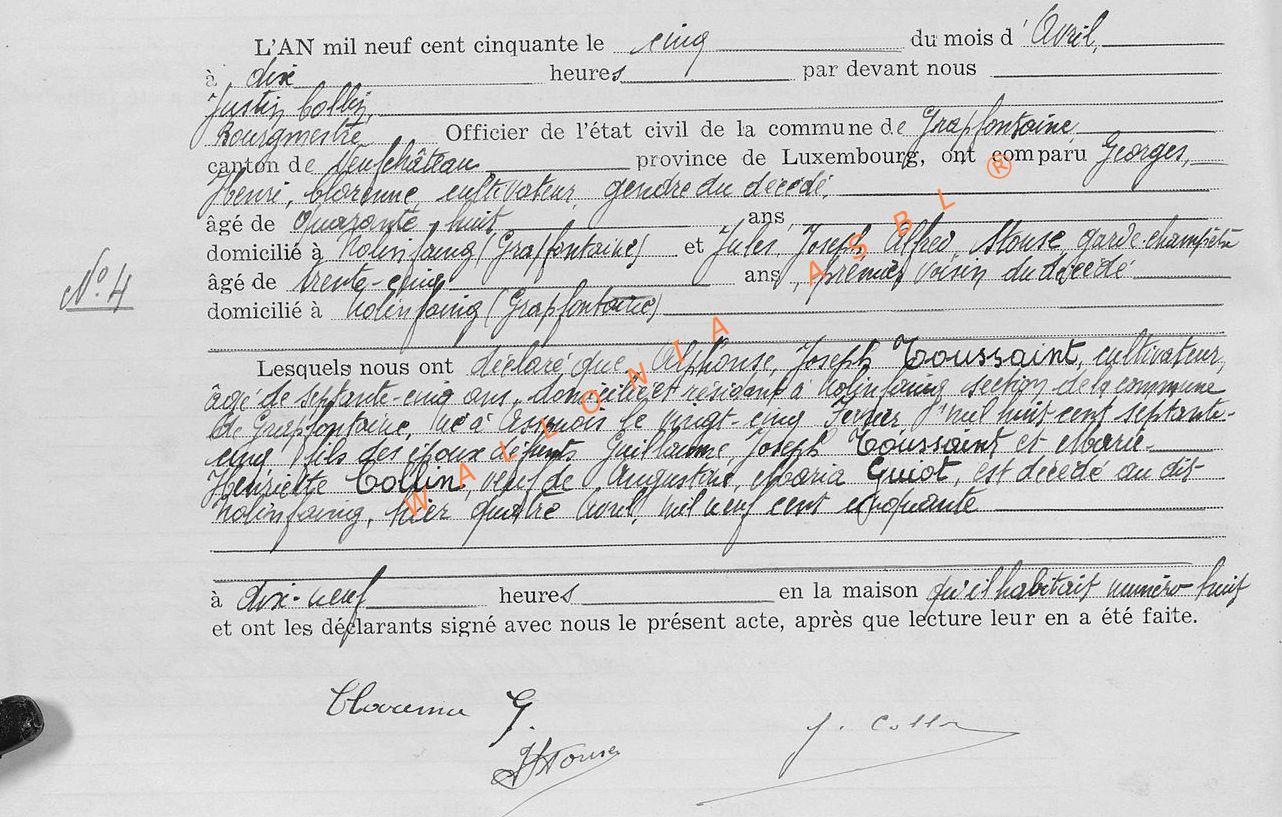 L'AN mil neuf cent cinquante le cinq du mois d'Avril,
à dix heures par devant nous
Justin Collin,
Bourgmestre Officier de l'état civil de la commune de Grapfontaine
canton de Neufchâteau province de Luxembourg, ont comparu Georges,
Henri, Clarenne, cultivateur, gendre du décédé,
âgé de quarante huit ans,
domicilié à Nolinfaing (Grapfontaine) et Jules, Joseph, Alfred, garde-champêtre
âgé de trente-cinq ans, premier voisin du décédé
domicilié à Nolinfaing (Grapfontaine)
N° 4
Lesquels nous ont déclaré que Alphonse, Joseph Toussaint, cultivateur,
âgé de septante-cinq ans, domicilié et résidant à Nolinfaing section de la commune
de Grapfontaine, né à Assenois le vingt-cinq Février mil huit cent septante-
cinq fils des époux défunts Guillaume, Joseph Toussaint et Marie-
Henriette Collin, veuf de Augustine, Maria Guiot, est décédé au dit
Nolinfaing, hier quatre Avril, mil neuf cent cinquante
à dix-neuf heures en la maison qu'il habitait numéro huit
et ont les déclarants signé avec nous le présent acte, après que lecture leur en a été faite.
Clarenne G.
J. Collin
WALLONIA ASBL ®